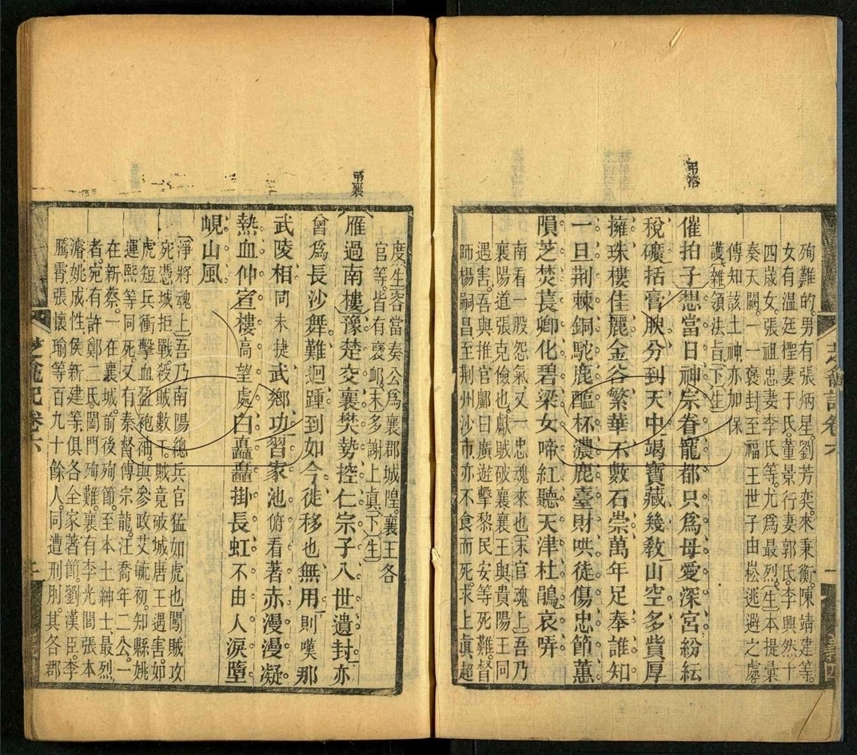 弔洛
殉難的。男有張炳星。劉芳奕。來秉衡。陳靖建等。
女有溫廷檉妻于氏。董景行妻郭氏。李興然十
四歲女。張祖忠妻李氏等。尤爲最烈。生本提彙
奏天闕。一一褒封。至福王世子由崧逃避之處。
傳知該土神亦加保
護。雜領法旨下生
催拍子想當日神宗眷寵都只爲母愛深宮紛紜
稅礦括膏腴分到天中竭寶藏幾敎山空多貲厚
擁珠樓佳麗金谷繁華不數石崇萬年足奉誰知
一旦荆棘銅駝鹿醢杯濃鹿臺財哄徒傷忠節蕙
隕芝焚萇卿化碧梁女啼紅聽天津杜鵑哀哢
南看一股怨氣又一忠魂來也末官魂上吾乃
襄陽道張克儉也。獻賊破襄。襄王與貴陽王同
遇害。吾與推官鄺曰廣遊擊黎民安等死難。督
師楊嗣昌至荆州沙市亦不食而死。求上眞超
芝龕記卷六
一
度。生容當奏公爲襄郡城隍。襄王各
官等。皆有褒卹。末多謝上眞下生
弔襄
雁過南樓豫楚交襄樊勢控仁宗子八世遺封亦
曾爲長沙舞難迴踵到如今徙移也無用則嘆那
武陵相同未捷武鄉功習家池俯看著赤漫漫凝
熱血仲宣樓高望處白矗矗掛長虹不由人淚墮
峴山風
淨將魂上吾乃南陽總兵官猛如虎也。闖賊攻
宛。憑城拒戰。殺賊數千。賊竟破城。唐王遇害。如
虎短兵衝擊。血盈袍袖。與參政艾毓初。知縣姚
運熙等同死。又有秦督傅宗龍。汪喬年二公。一
在新蔡。一在襄城。前後殉節。至本土紳士最烈
者。宛有許鄭二氏闔門殉難。襄有李光間張本
濬。姚成性。侯新建等。俱各全家著節。劉漢臣。李
騰霄。張懷瑜等百九十餘人。同遭刑刖。其各郡
芝龕記卷六
二